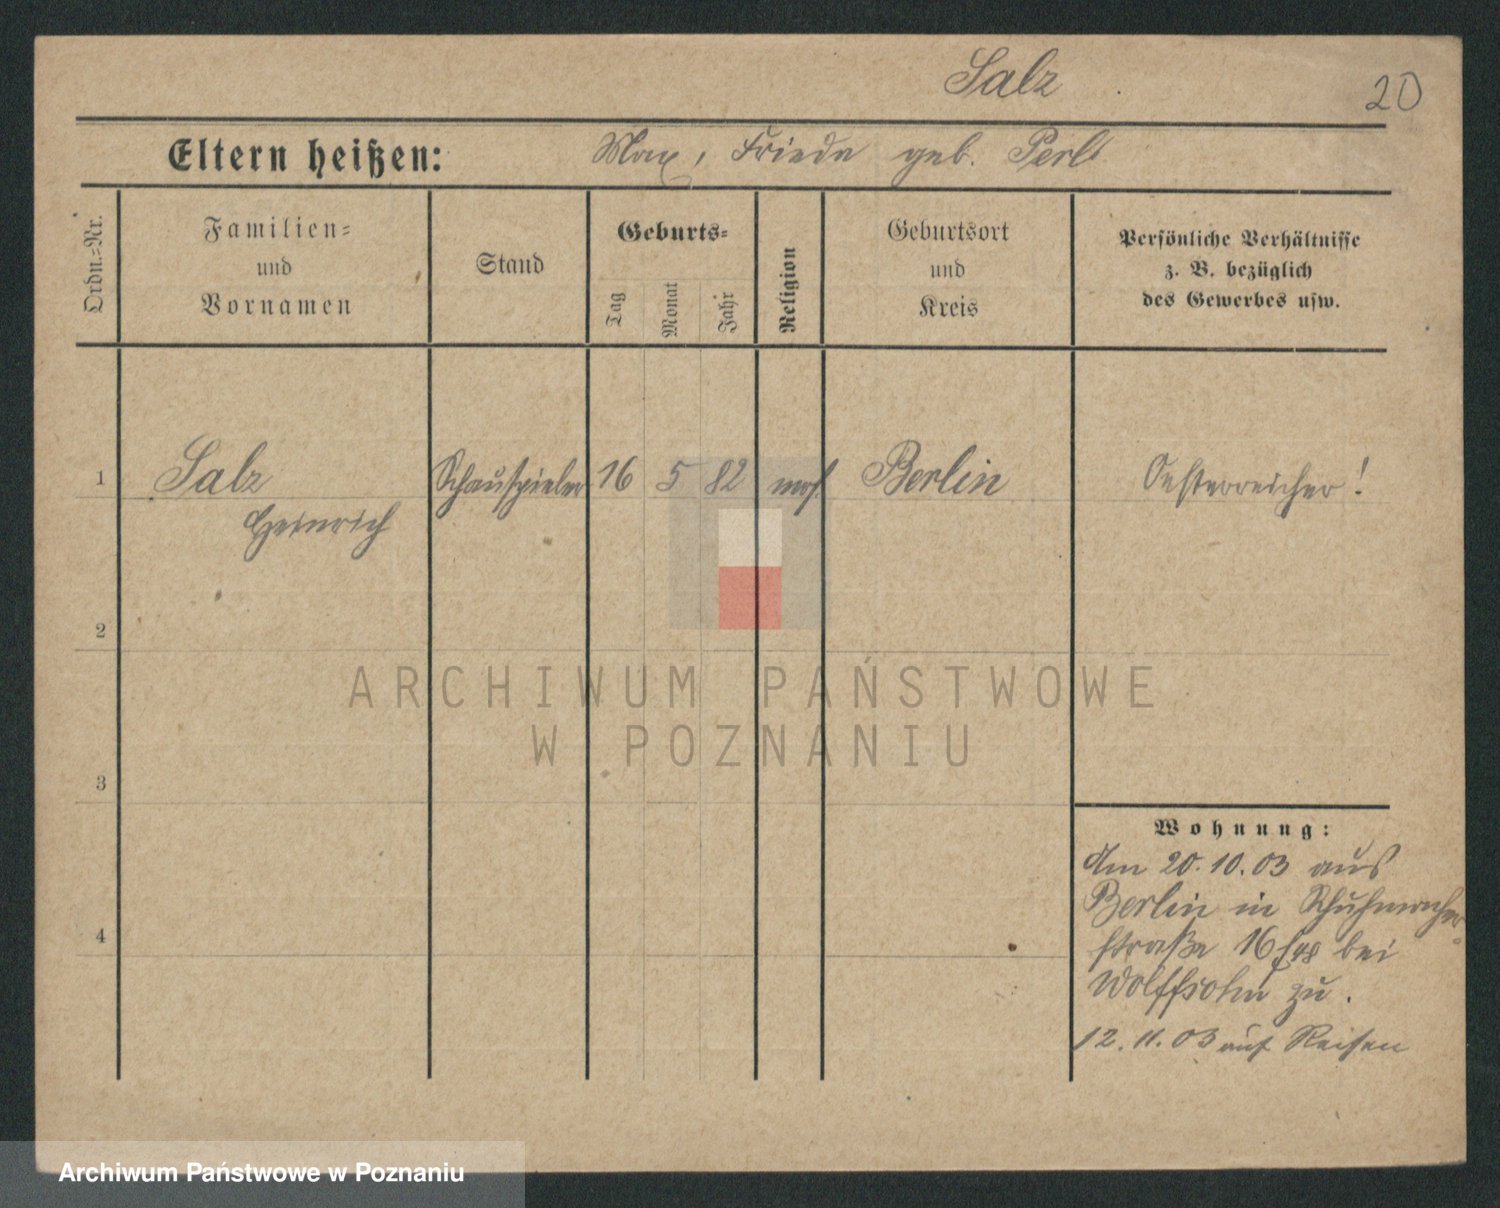 Salz
20
Eltern heißen: Max, Frieda geb. Perl
Ordn.-Nr.
Familien-
und
Vornamen
Stand
Geburts-
Tag
Monat
Jahr
Religion
Geburtsort
und
Kreis
Persönliche Verhältnisse
z. B. bezüglich
des Gewerbes usw.
1 Salz Schauspieler 16 5 82 mos. Berlin Oesterreicher!
Heinrich
2
3
4
Wohnung:
Am 20.10.03 aus
Berlin in Schuhmacher-
straße 16 bei
Wolffsohn zu.
12.11.03 auf Reisen
ARCHIWUM PAŃSTWOWE
W POZNANIU
Archiwum Państwowe w Poznaniu